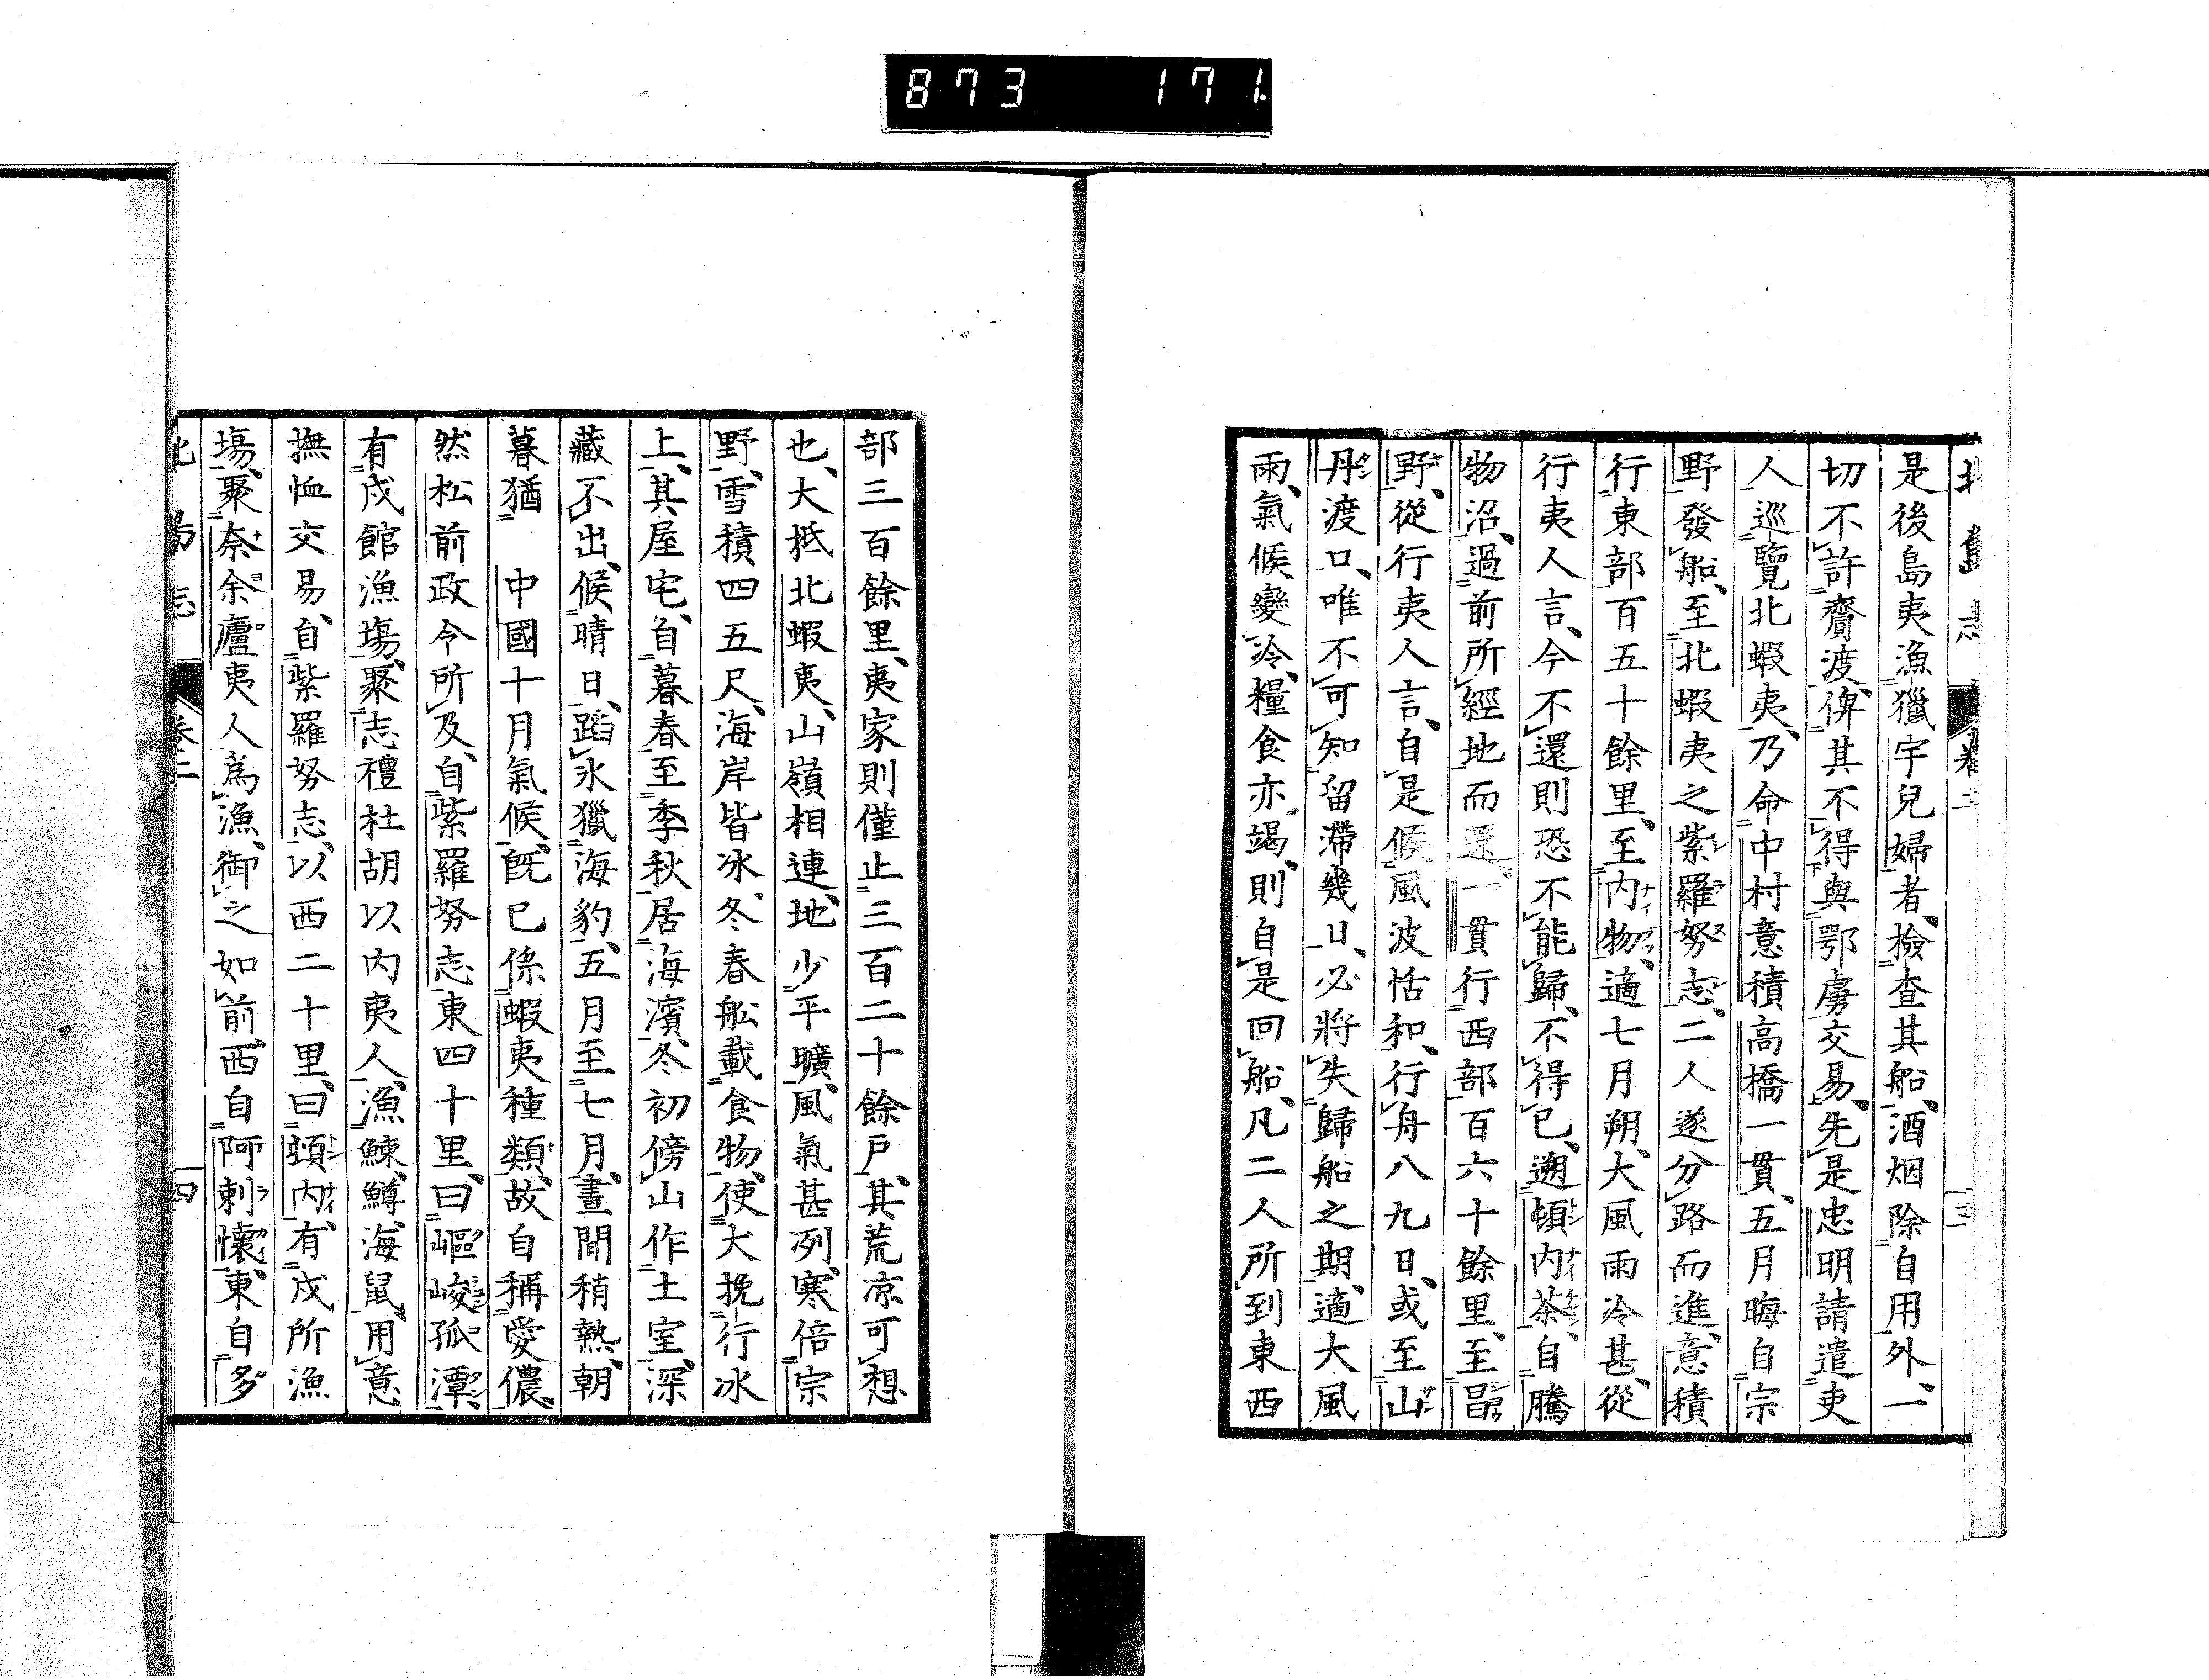 873 171
北島志 卷二 三
是後島夷漁獵宇兒婦者、檢查其船、酒烟除自用外、一
切不許齎渡、俾其不得與鄂虜交易、先是忠明請遣吏
人巡覽北蝦夷、乃命中村意積高橋一貫、五月晦自宗
野發船、至北蝦夷之紫羅努志、二人遂分路而進、意積
行東部百五十餘里、至內物、適七月朔、大風雨冷甚、從
行夷人言、今不還則恐不能歸、不得已、遡頓內茶、自騰
物沼、過前所經地而還、一貫行西部百六十餘里、至
野、從行夷人言、自是候風波恬和、行舟八九日、或至山
丹渡口、唯不可知留滯幾日、必將失歸船之期、適大風
雨、氣候變冷、糧食亦竭、則自是回船、凡二人所到東西
部三百餘里、夷家則僅止三百二十餘戶、其荒凉可想
也、大抵北蝦夷、山嶺相連、地少平曠、風氣甚冽、寒倍宗
野、雪積四五尺、海岸皆冰、冬春舩載食物、使犬挽行冰
上、其屋宅、自暮春至季秋居海濱、冬初傍山作土室、深
藏不出、候晴日、蹈氷獵海豹、五月至七月、晝間稍熱、朝
暮猶 中國十月氣候、既已係蝦夷種類、故自稱愛儂、
然松前政令所及、自紫羅努志東四十里、曰嶇峻孤潭、
有戍館漁場、聚志禮杜胡以內夷人、漁鰊、鱒、海鼠、用意
撫恤交易、自紫羅努志、以西二十里、曰頭內、有戍所漁
場、聚奈余廬夷人為漁、御之如前、西自阿剌懷、東自多
北島志 卷二 四